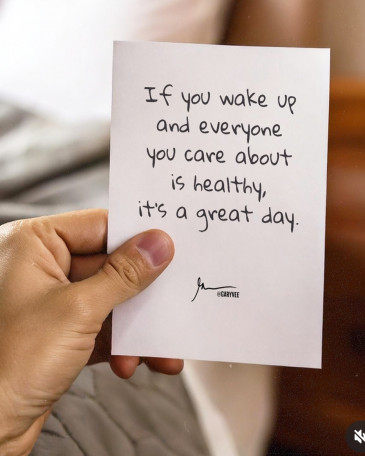 If you wake up
and everyone
you care about
is healthy,
it's a great day.
@GARYVEE